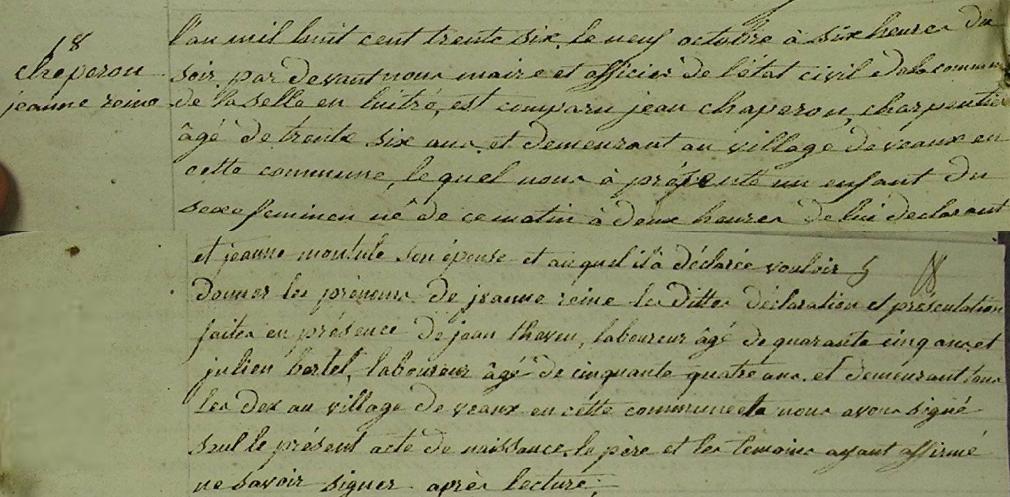 18
cheperon
jeanne reine
l'an mil huit cent trente six, le neuf octobre à six heures du
soir par devant nous maire et officier de l'état civil de la commune
de la selle en luitré, est comparu jean chaperon, charpentier
âgé de trente six ans, et demeurant au village de veaux en
cette commune, le quel nous à présenté un enfant du
sexe feminen né de ce matin à deux heures de lui declarant
et jeanne son épouse et au quel il à déclarée vouloir
18
donner les prénoms de jeanne reine les dittes déclaration et présentation
faites en présence de jean laboureur âgé de quarante cinq ans, et
julien bertel, laboureur âgé de cinquante quatre ans, et demeurant tous
les dex au village de veaux en cette commune et nous avons signé
seul le présent acte de naissance, le père et les temoins ayant affirmé
ne savoir signer après lecture;